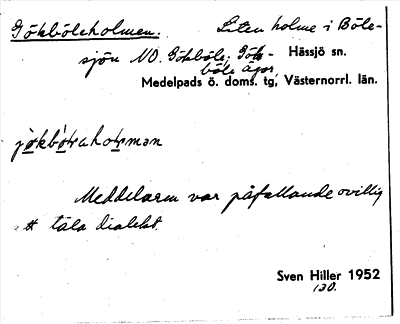 Gökböleholmen. Liten holme i Böle-
sjön NO Gökböle; Gök- Hässjö sn.
böle ägor
Medelpads ö. doms. tg, Västernorrl. län.
Meddelaren var påfallande ovillig
att tala dialekt.
Sven Hiller 1952
130.